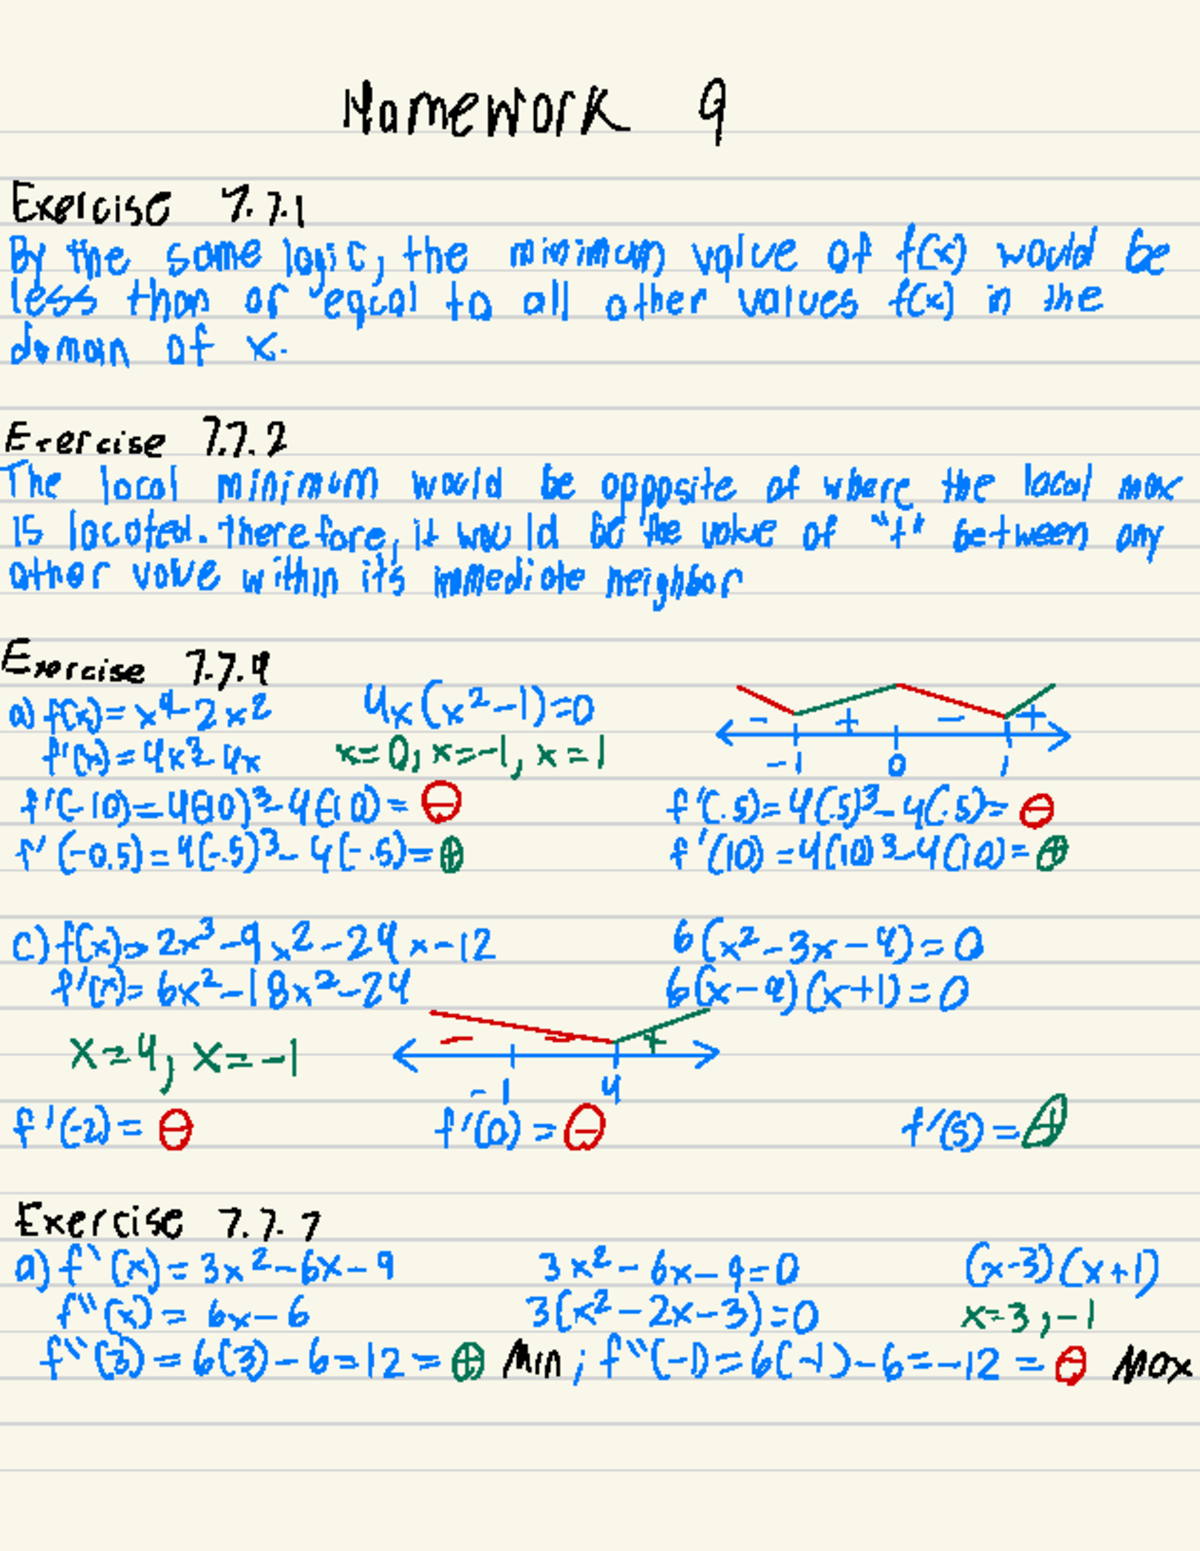 Homework 9
Exercise 7.7.1
By the same logic, the minimum value of f(x) would be
less than or equal to all other values f(x) in the
domain of x.
Exercise 7.7.2
The local minimum would be opposite of where the local max
is located. Therefore, it would be the value of "f" between any
other value within it's immediate neighbor
Exercise 7.7.4
a) f(x)=x⁴-2x² 4x(x²-1)=0
- + - +
f'(x)=4x³-4x x=0, x=-1, x=1 -1 0 1
f'(-10)=4(-10)³-4(-10)=⊖ f'(.5)=4(.5)³-4(.5)=⊖
f'(-0.5)=4(-.5)³-4(-.5)=⊕ f'(10)=4(10)³-4(10)=⊕
c) f(x)=2x³-9x²-24x-12 6(x²-3x-4)=0
f'(x)=6x²-18x²-24 6(x-4)(x+1)=0
x=4, x=-1 - - +
-1 4
f'(-2)=⊖ f'(0)=⊖ f'(5)=⊕
Exercise 7.7.7
a) f'(x)=3x²-6x-9 3x²-6x-9=0 (x-3)(x+1)
f''(x)=6x-6 3(x²-2x-3)=0 x=3,-1
f''(3)=6(3)-6=12=⊕ Min; f''(-1)=6(-1)-6=-12=⊖ Max